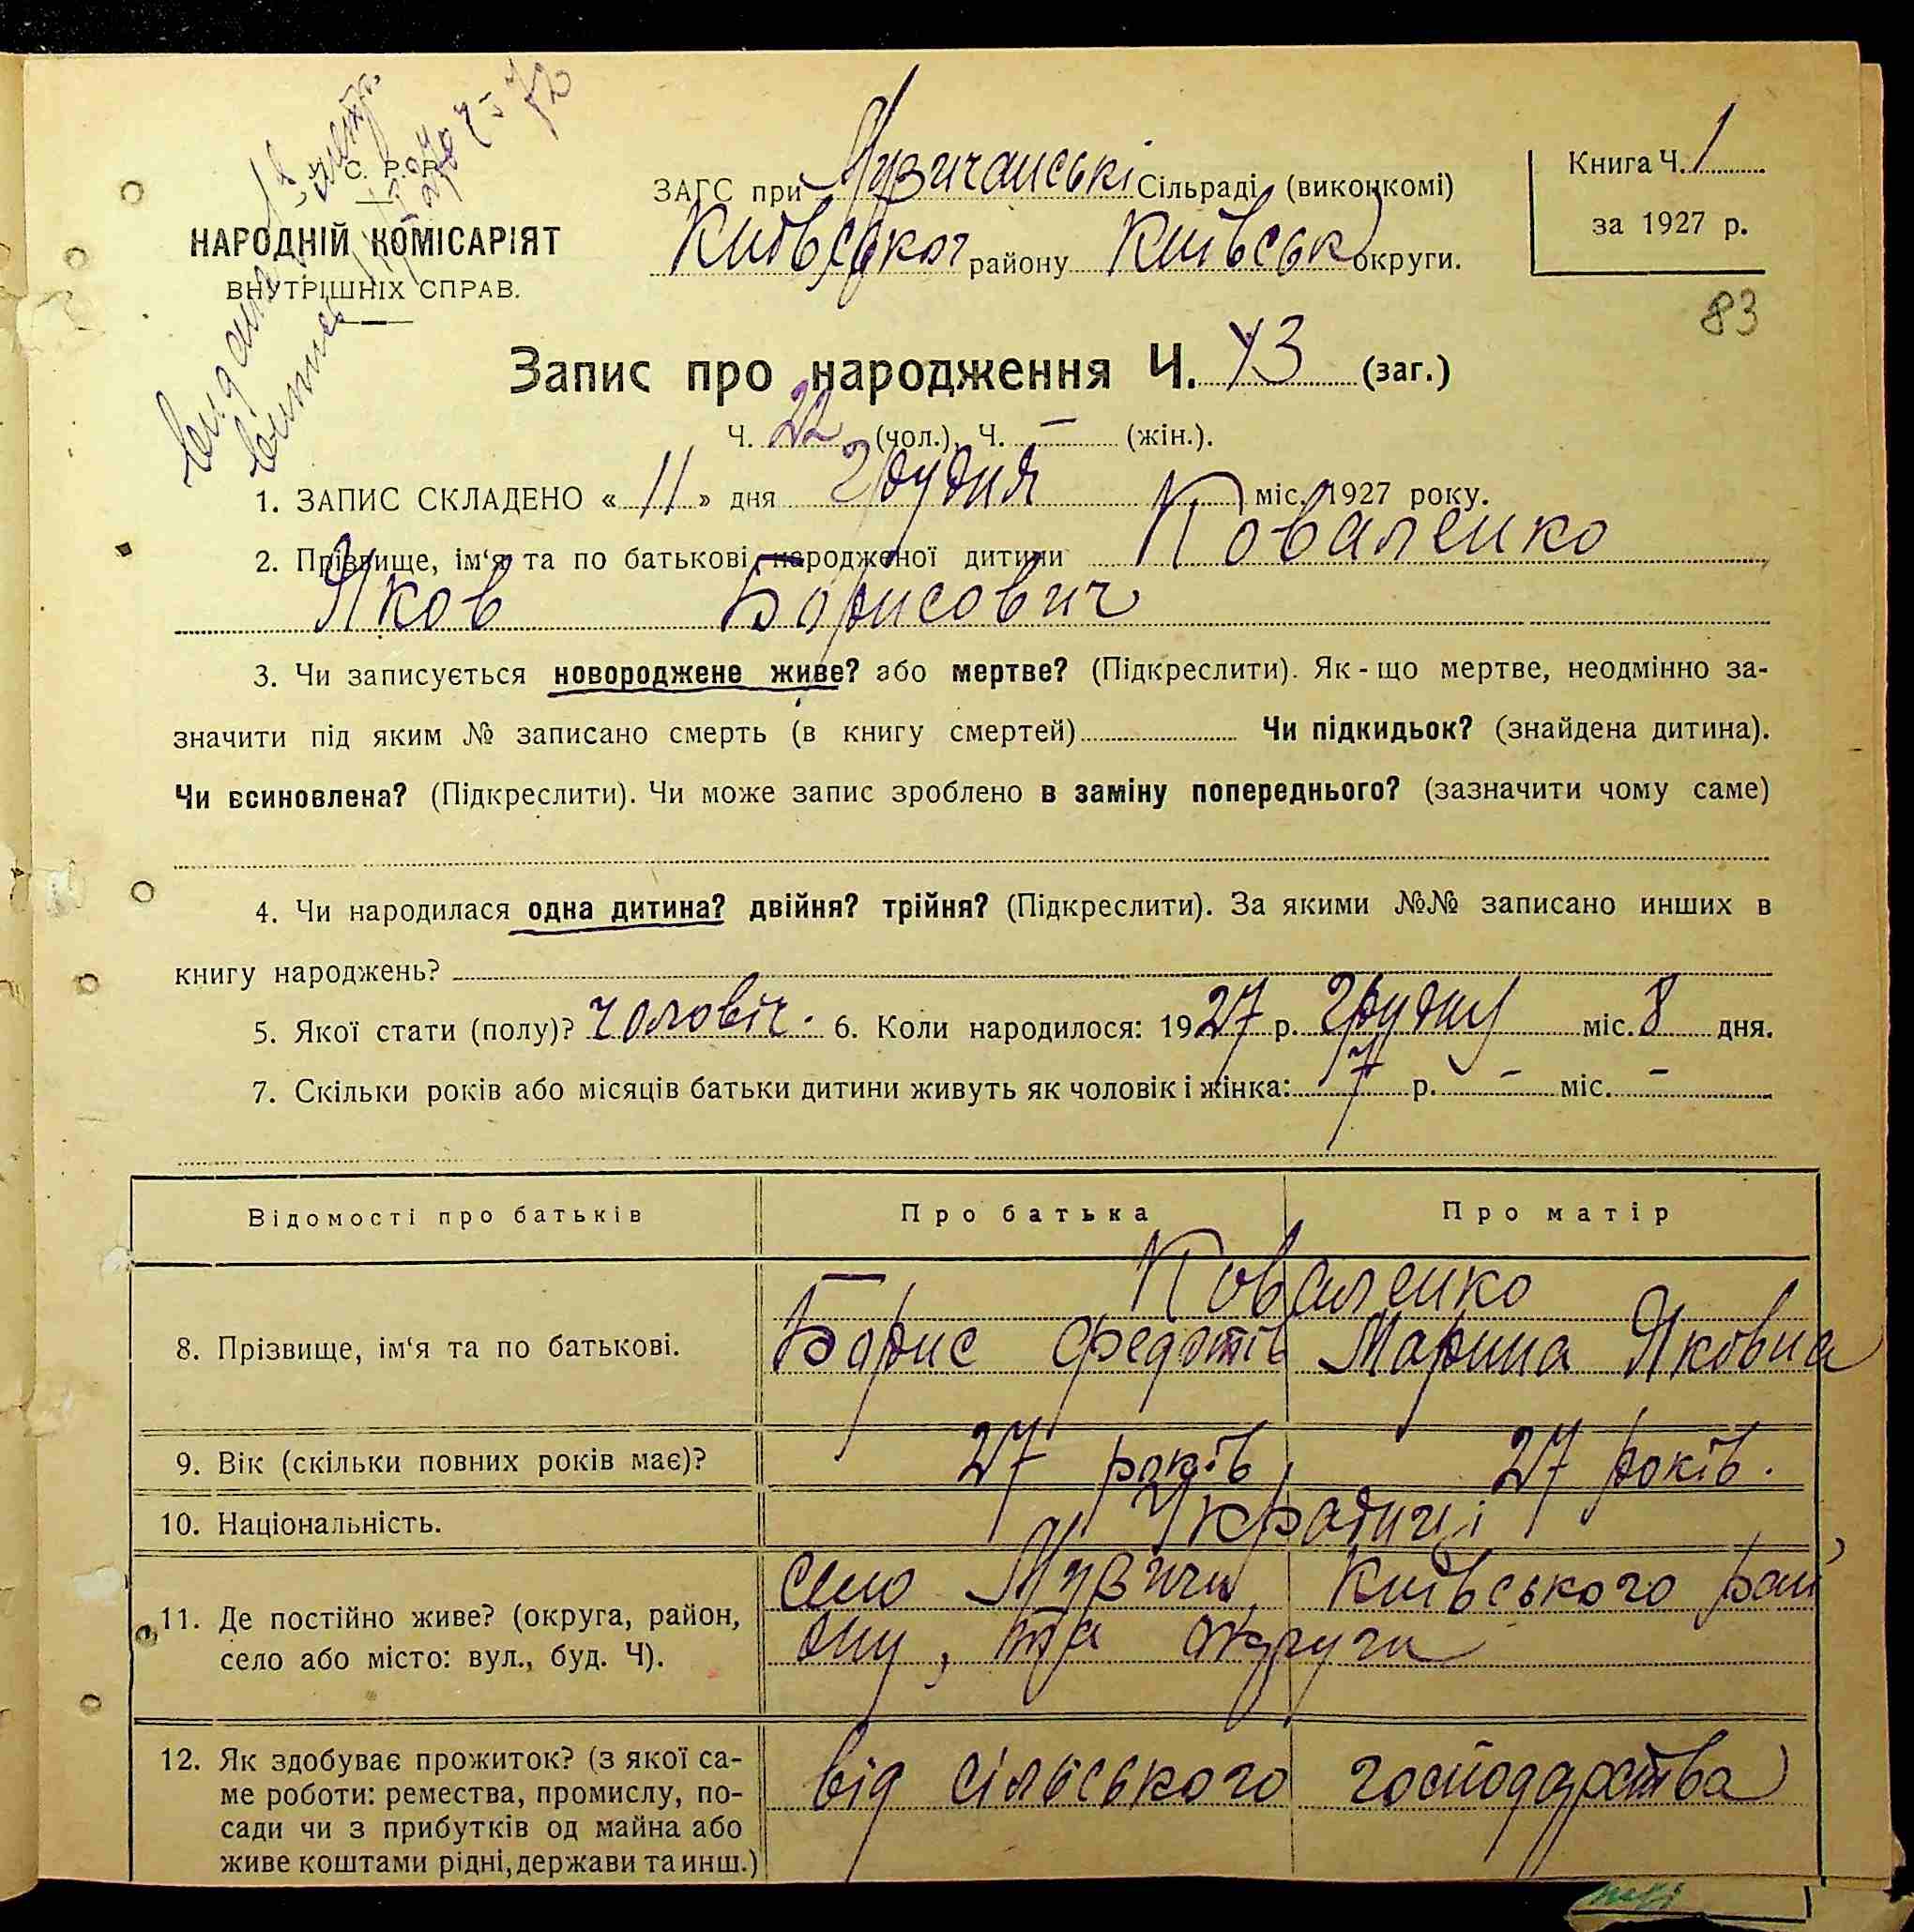 У. С. Р. Р.
НАРОДНІЙ КОМІСАРІЯТ
ВНУТРІШНІХ СПРАВ.
ЗАГС при Музичанські Сільраді (виконкомі)
Київського району Київськ округи.
Книга Ч. 1
за 1927 р.
83
Запис про народження Ч. 43 (заг.)
Ч. 22 (чол.), Ч. – (жін.).
1. ЗАПИС СКЛАДЕНО « 11 » дня Грудня міс. 1927 року.
2. Прізвище, ім‘я та по батькові народженої дитини Коваленко
Яков Борисович
3. Чи записується новороджене живе? або мертве? (Підкреслити). Як-що мертве, неодмінно за-
значити під яким № записано смерть (в книгу смертей) Чи підкидьок? (знайдена дитина).
Чи всиновлена? (Підкреслити). Чи може запис зроблено в заміну попереднього? (зазначити чому саме)
4. Чи народилася одна дитина? двійня? трійня? (Підкреслити). За якими №№ записано инших в
книгу народжень?
5. Якої стати (полу)? чоловіч. 6. Коли народилося: 1927 р. Грудня міс. 8 дня.
7. Скільки років або місяців батьки дитини живуть як чоловік і жінка: 7 р. – міс. –
Відомості про батьків Про батька Про матір
Коваленко
8. Прізвище, ім‘я та по батькові. Борис Федотів Марина Яковна
9. Вік (скільки повних років має)? 27 років 27 років.
10. Національність. Українці
11. Де постійно живе? (округа, район, село Музичи, Київського рай
село або місто: вул., буд. Ч). ону, та округи
12. Як здобуває прожиток? (з якої са- від сільського господарства
ме роботи: ремества, промислу, по-
сади чи з прибутків од майна або
живе коштами рідні, держави та инш.)